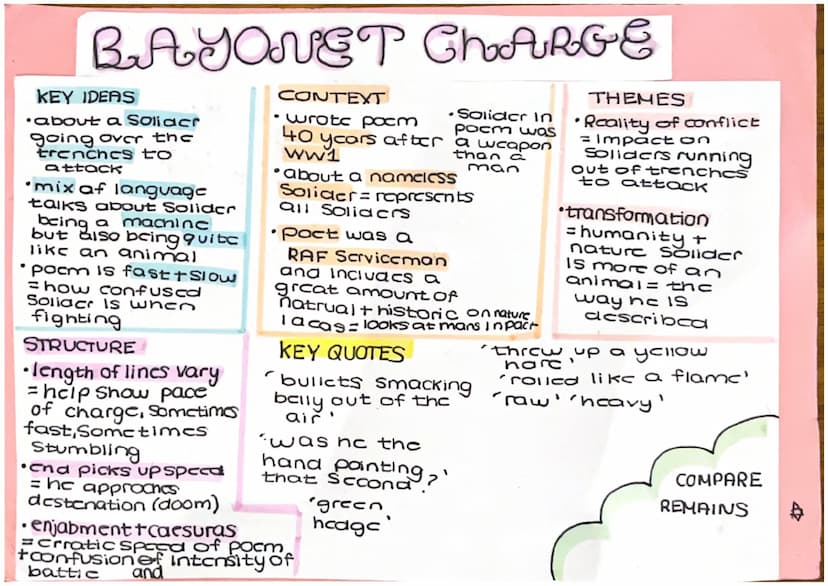 BAYONET ChARGE
KEY IDEAS
•about a Solider
going over the
trenches to
attack
•mix of language
talks about Solider
being a machine
but also being quite
like an animal
•poem is fast+slow
=how confused
Solider is when
fighting
CONTEXT
•wrote poem
40 years after
WW1
•about a nameless
Solider=represents
all Soliders
•poet was a
RAF Serviceman
and Includes a
great amount of
natrual+historic on nature
Ideas=looks at mans Impact
•Solider In
poem was
a weapon
than a
man
THEMES
•Reality of conflict
=Impact on
Soliders running
out of trenches
to attack
•transformation
=humanity+
nature Solider
Is more of an
animal=the
way he is
described
STRUCTURE
•length of lines vary
=help Show pace
of charge, Sometimes
fast, Sometimes
Stumbling
•end picks up speed
=he approches
destenation (doom)
•enjabment+caesuras
=erratic speed of poem
+confusion of intensity of
battle and
KEY QUOTES
'bullets smacking
belly out of the
air'
'was he the
hand pointing
that second?'
'green
hedge'
'threw up a yellow
hare'
'rolled like a flame'
'raw' 'heavy'
COMPARE
REMAINS